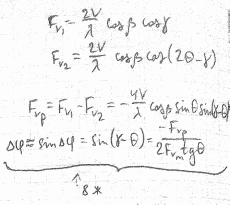 F_{v_1} = \frac{2V}{\lambda} \cos\beta \cos\gamma
F_{v_2} = \frac{2V}{\lambda} \cos\beta \cos(2\theta - \gamma)
F_{v_p} = F_{v_1} - F_{v_2} = -\frac{4V}{\lambda} \cos\beta \sin\theta \sin(\gamma - \theta)
\Delta\varphi \approx \sin\Delta\varphi = \sin(\gamma - \theta) = \frac{-F_{v_p}}{2F_{v_m} tg\theta}
↑
8 *